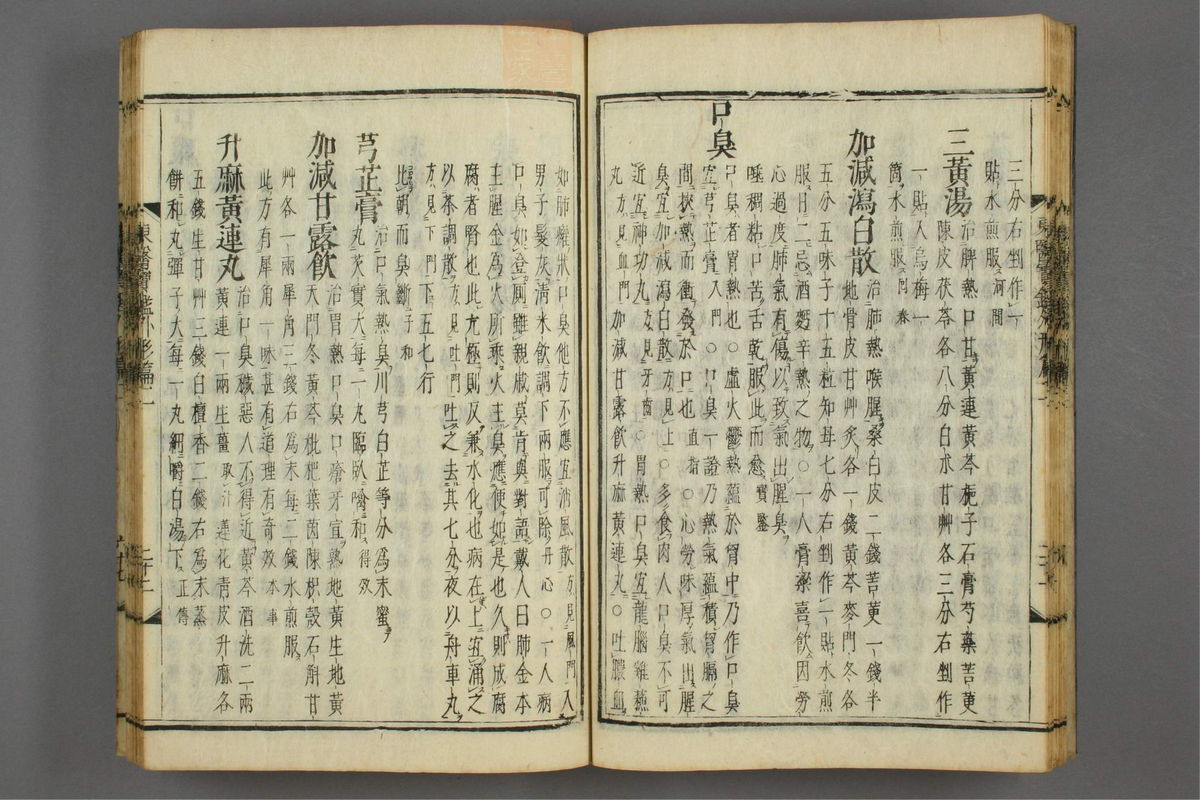 三分右剉作一
貼水煎服河間
三黃湯治脾熱口甘黃連黃芩梔子石膏芍藥苦莄
陳皮茯苓各八分白朮甘艸各三分右剉作
一貼入烏梅一
箇水煎服回春
加減瀉白散治肺熱喉腥桑白皮二錢苦莄一錢半
地骨皮甘艸炙各一錢黃芩麥門冬各
五分五味子十五粒知母七分右剉作一貼水煎
服日二忌酒麪辛熱之物○一人膏粱喜飮因勞
心過度肺氣有傷以致氣出腥臭
唾稠粘口苦舌乾服此而愈寶鑒
口臭口臭者胃熱也○虛火鬱熱蘊於胷中乃作口臭
宜芎芷膏入門○口臭一證乃熱氣蘊積胷膈之
間挾熱而衝發於口也直指○心勞味厚氣出腥
臭宜加減瀉白散方見上○多食肉人口臭不可
近宜神功丸方見牙齒○胃熱口臭宜龍腦雞蘇
丸方見血門加減甘露飮升麻黃連丸○吐膿血
如肺癰狀口臭他方不應宜消風散方見風門入
男子髮灰淸米飮調下兩服可除丹心○一人病
口臭如登厠雖親戚莫肯與對語戴人曰肺金本
主腥金爲火所乘火主臭應便如是也久則成腐
腐者腎也此亢極則反兼水化也病在上宜涌之
以茶調散方見吐門吐之去其七分夜以舟車丸
方見下門下五七行
比朝而臭斷子和
芎芷膏治口氣熱臭川芎白芷等分爲末蜜
丸芡實大每一丸臨臥噙和得效
加減甘露飮治胃熱口臭口瘡牙宣熟地黃生地黃
天門冬黃芩枇杷葉茵陳枳殼石斛甘
艸各一兩犀角三錢右為末每二錢水煎服
此方有犀角一味甚有道理有奇效本事
升麻黃連丸治口臭穢惡人不得近黃芩酒洗二兩
黃連一兩生薑取汁蓮花靑皮升麻各
五錢生甘艸三錢白檀香二錢右爲末蒸
餠和丸彈子大每一丸細嚼白湯下正傳